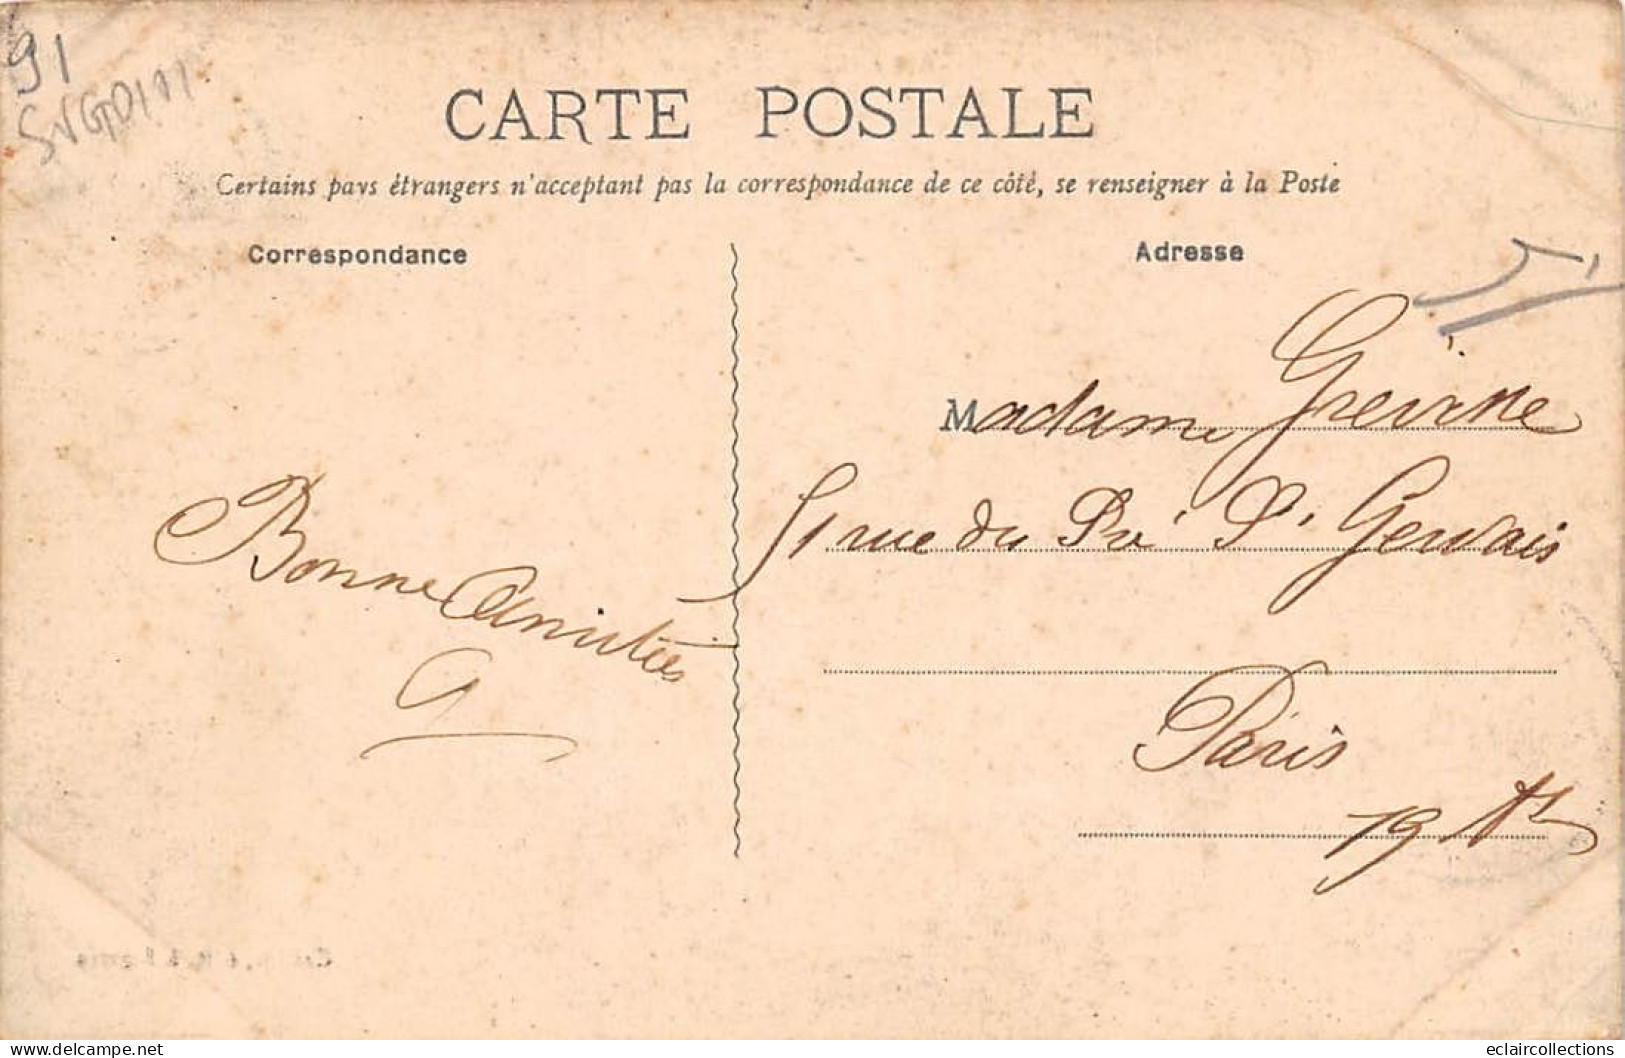 91
CARTE POSTALE
Certains pays étrangers n'acceptant pas la correspondance de ce côté, se renseigner à la Poste
Correspondance
Adresse
Madame
51 rue du Pré St Gervais
Bonne Amitiés
G
Paris
19
delcampe.net
eclaircollections